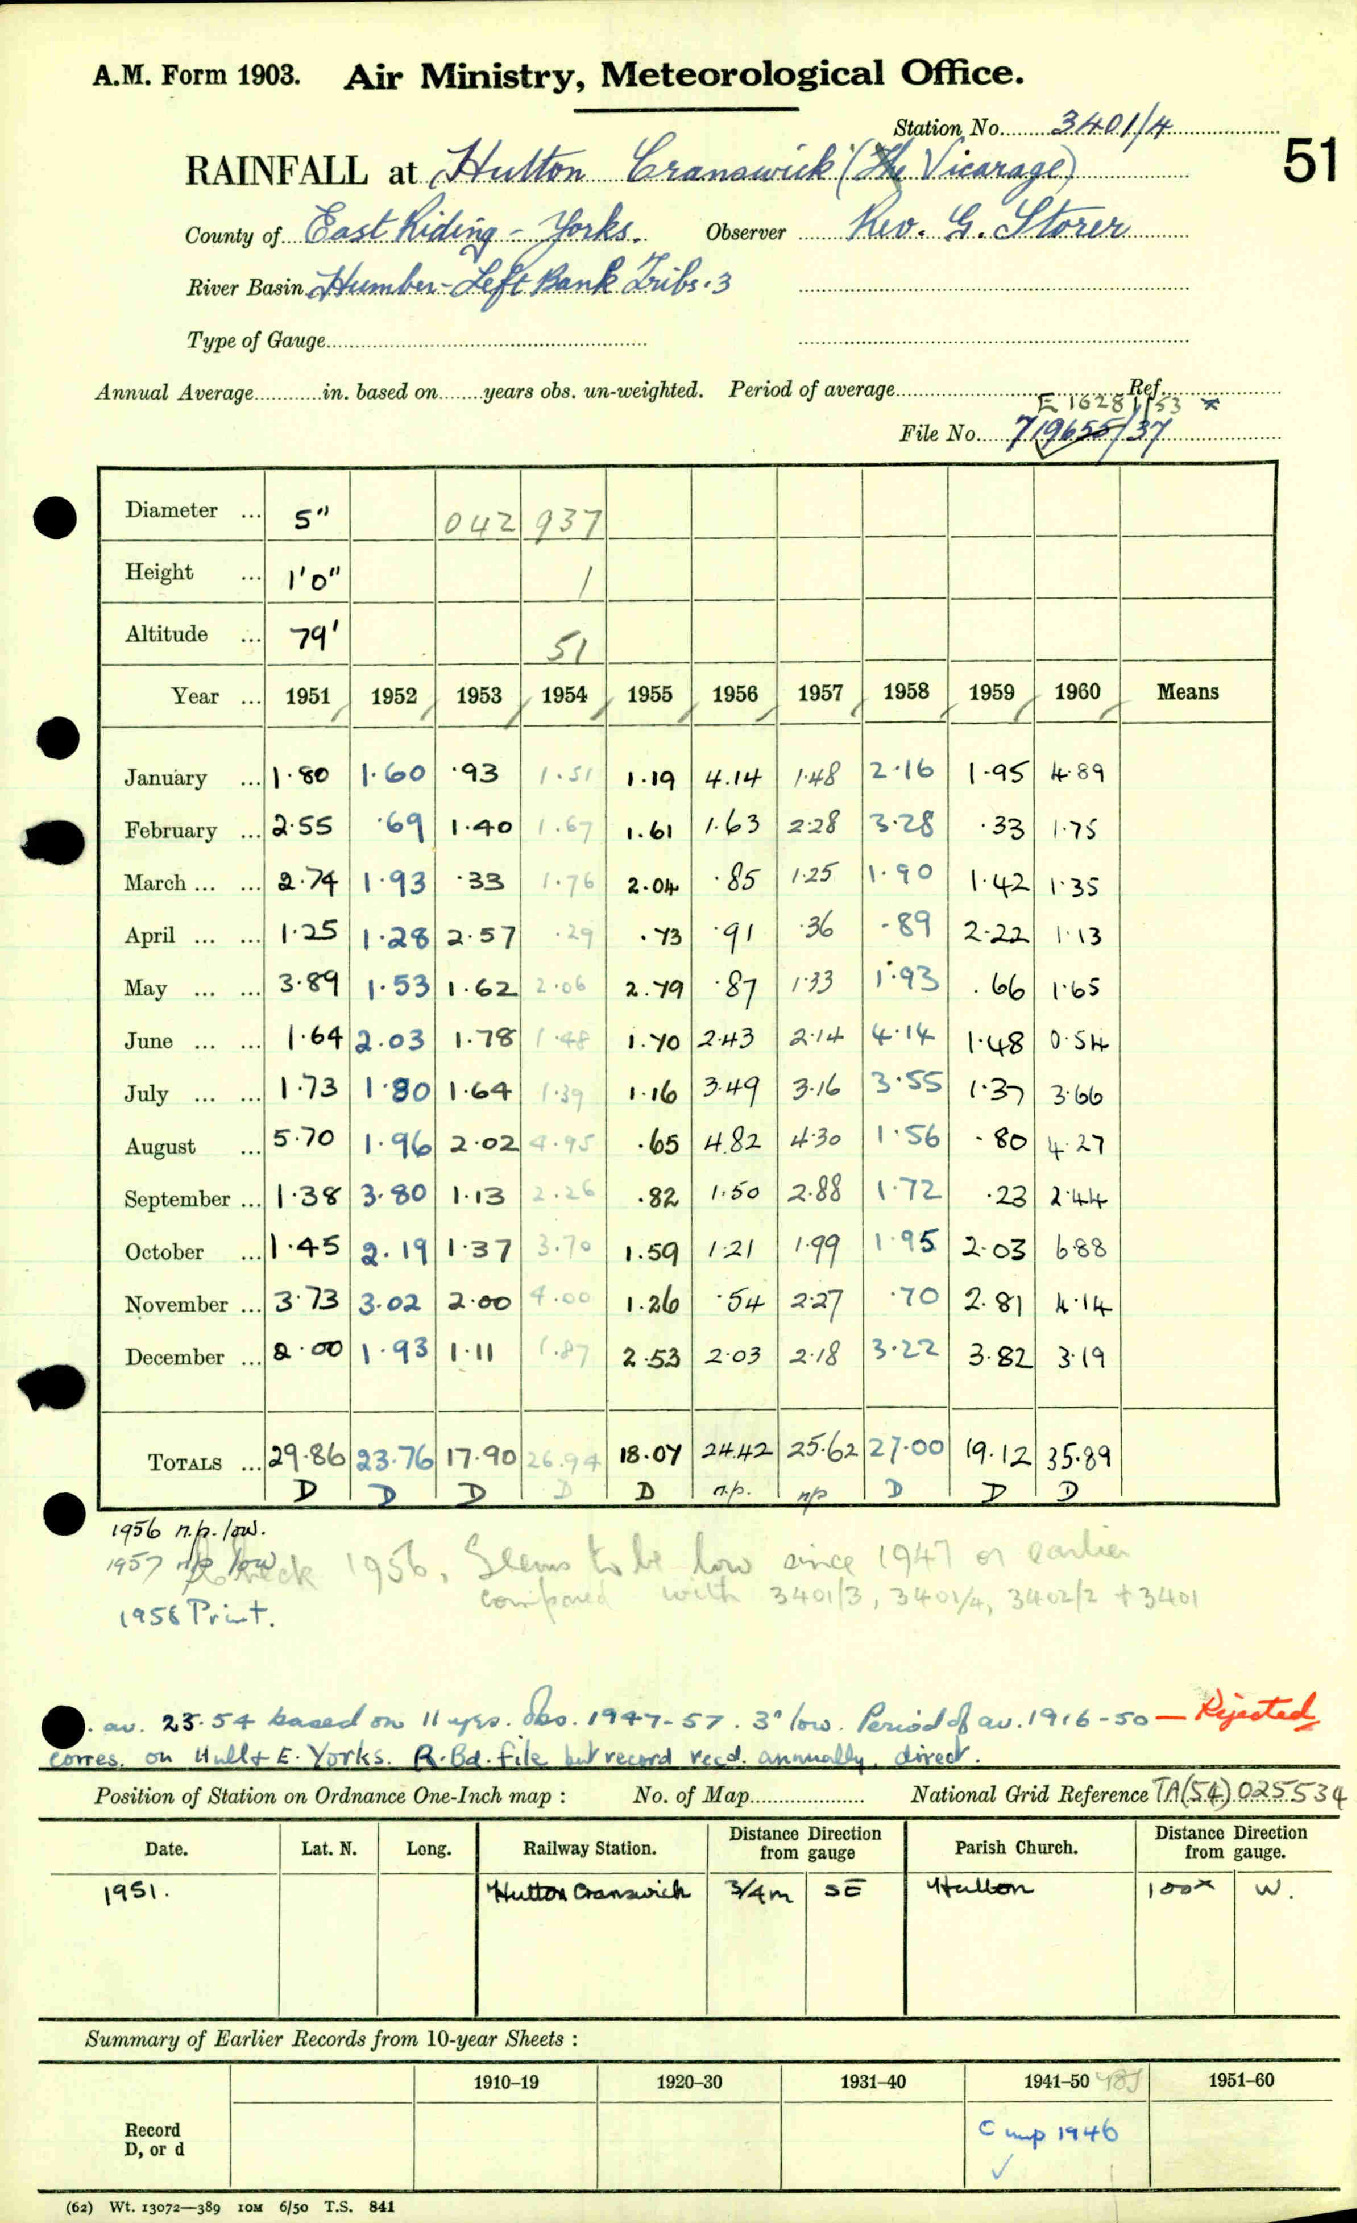 A.M. Form 1903. Air Ministry, Meteorological Office.
Station No. 3401/4
51
RAINFALL at Hutton Cranswick (The Vicarage)
County of East Riding - Yorks. Observer Rev. G. Storer
River Basin Humber - Left Bank Tribs. 3
Type of Gauge
Annual Average in. based on years obs. un-weighted. Period of average Ref.
E 16281/53 x
File No. 719655/37
Diameter ... 5" 042 937
Height ... 1'0" 1
Altitude ... 79' 51
Year ... 1951 1952 1953 1954 1955 1956 1957 1958 1959 1960 Means
January ... 1.80 1.60 .93 1.51 1.19 4.14 1.48 2.16 1.95 4.89
February ... 2.55 .69 1.40 1.67 1.61 1.63 2.28 3.28 .33 1.75
March ... ... 2.74 1.93 .33 1.76 2.04 .85 1.25 1.90 1.42 1.35
April ... ... 1.25 1.28 2.57 .29 .73 .91 .36 .89 2.22 1.13
May ... ... 3.89 1.53 1.62 2.06 2.79 .87 1.33 1.93 .66 1.65
June ... ... 1.64 2.03 1.78 1.48 1.70 2.43 2.14 4.14 1.48 0.54
July ... ... 1.73 1.80 1.64 1.39 1.16 3.49 3.16 3.55 1.37 3.66
August ... 5.70 1.96 2.02 4.95 .65 4.82 4.30 1.56 .80 4.27
September ... 1.38 3.80 1.13 2.26 .82 1.50 2.88 1.72 .23 2.44
October ... 1.45 2.19 1.37 3.70 1.59 1.21 1.99 1.95 2.03 6.88
November ... 3.73 3.02 2.00 4.00 1.26 .54 2.27 .70 2.81 4.14
December ... 2.00 1.93 1.11 1.87 2.53 2.03 2.18 3.22 3.82 3.19
TOTALS ... 29.86 23.76 17.90 26.94 18.07 24.42 25.62 27.00 19.12 35.89
D D D D D n.p. np D D D
1956 n.p. low.
1957 np low
Check 1956. Seems to be low since 1947 or earlier
compared with 3401/3, 3401/4, 3402/2 + 3401
1958 Print.
. av. 23.54 based on 11 yrs. Obs. 1947-57. 3" low. Period of av. 1916-50 — Rejected
corres. on Hull & E. Yorks. R. Bd. file but record recd. annually, direct.
Position of Station on Ordnance One-Inch map : No. of Map National Grid Reference TA(54) 025534
Date. Lat. N. Long. Railway Station. Distance from gauge Direction Parish Church. Distance from gauge. Direction
1951. Hutton Cranswick 3/4m SE Hutton 100x W.
Summary of Earlier Records from 10-year Sheets :
1910–19 1920–30 1931–40 1941–50 1951–60
Record
D, or d
C 1946
(62) Wt. 13072—389 10M 6/50 T.S. 841